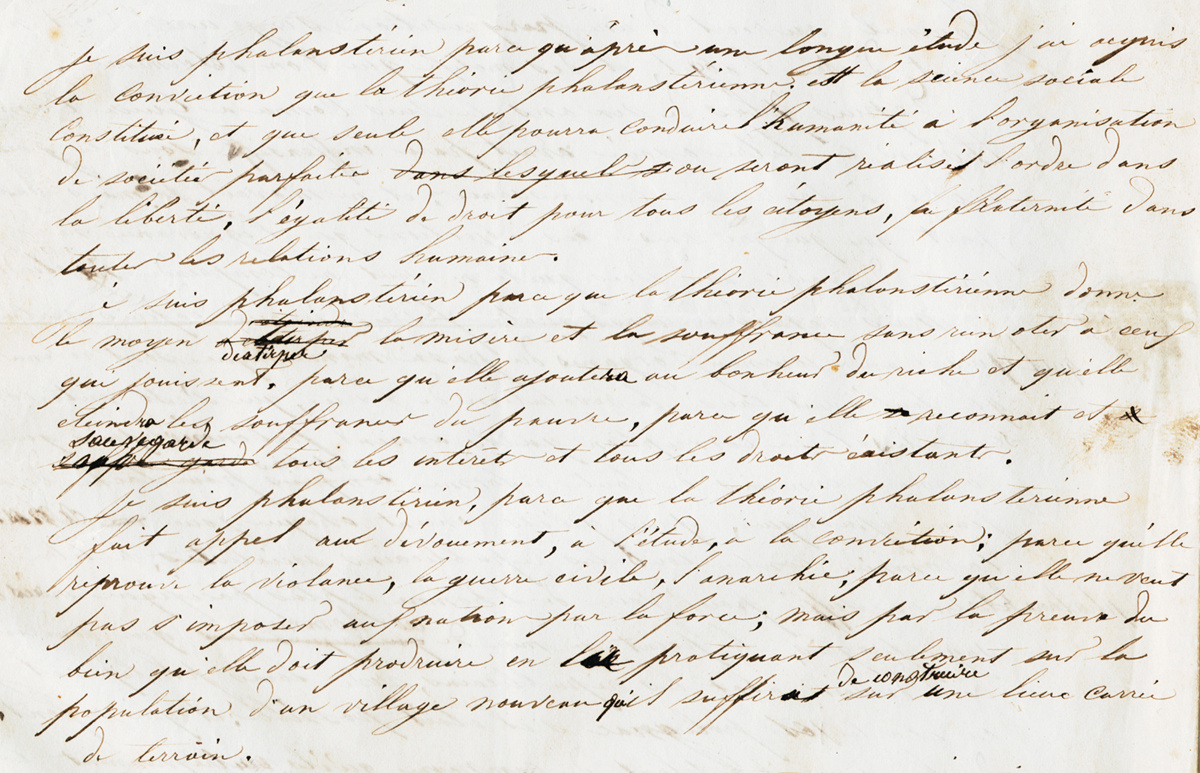 Je suis phalanstérien parce qu'après une longue étude j'ai acquis
la conviction que la théorie phalanstérienne est la science sociale
constituée, et que seule elle pourra conduire l'humanité à l'organisation
de sociétés parfaites dans lesquels ou seront réalisés l'ordre dans
la liberté, l'égalité de droit pour tous les citoyens, la fraternité dans
toutes les relations humaines.
Je suis phalanstérien parce que la théorie phalanstérienne donne
le moyen la misère et la souffrance sans rien oter à ceux
d'extirper
qui jouissent. parce qu'elle ajoutera au bonheur du riche et qu'elle
éteindra les souffrances du pauvre, parce qu'elle reconnait et
sauvegarde
tous les interets et tous les droits éxistants.
Je suis phalanstérien, parce que la théorie phalanstérienne
fait appel aux dévouement, à l'étude, à la conviction; parce qu'elle
reprouve la violance, la guerre civile, l'anarchie; parce qu'elle ne veut
pas s'imposer aux nation par la force; mais par la preuve du
bien qu'elle doit produire en pratiquant seulement sur la
de construire
population d'un village nouveau qu'il suffirait sur une lieue carrée
de terrain.